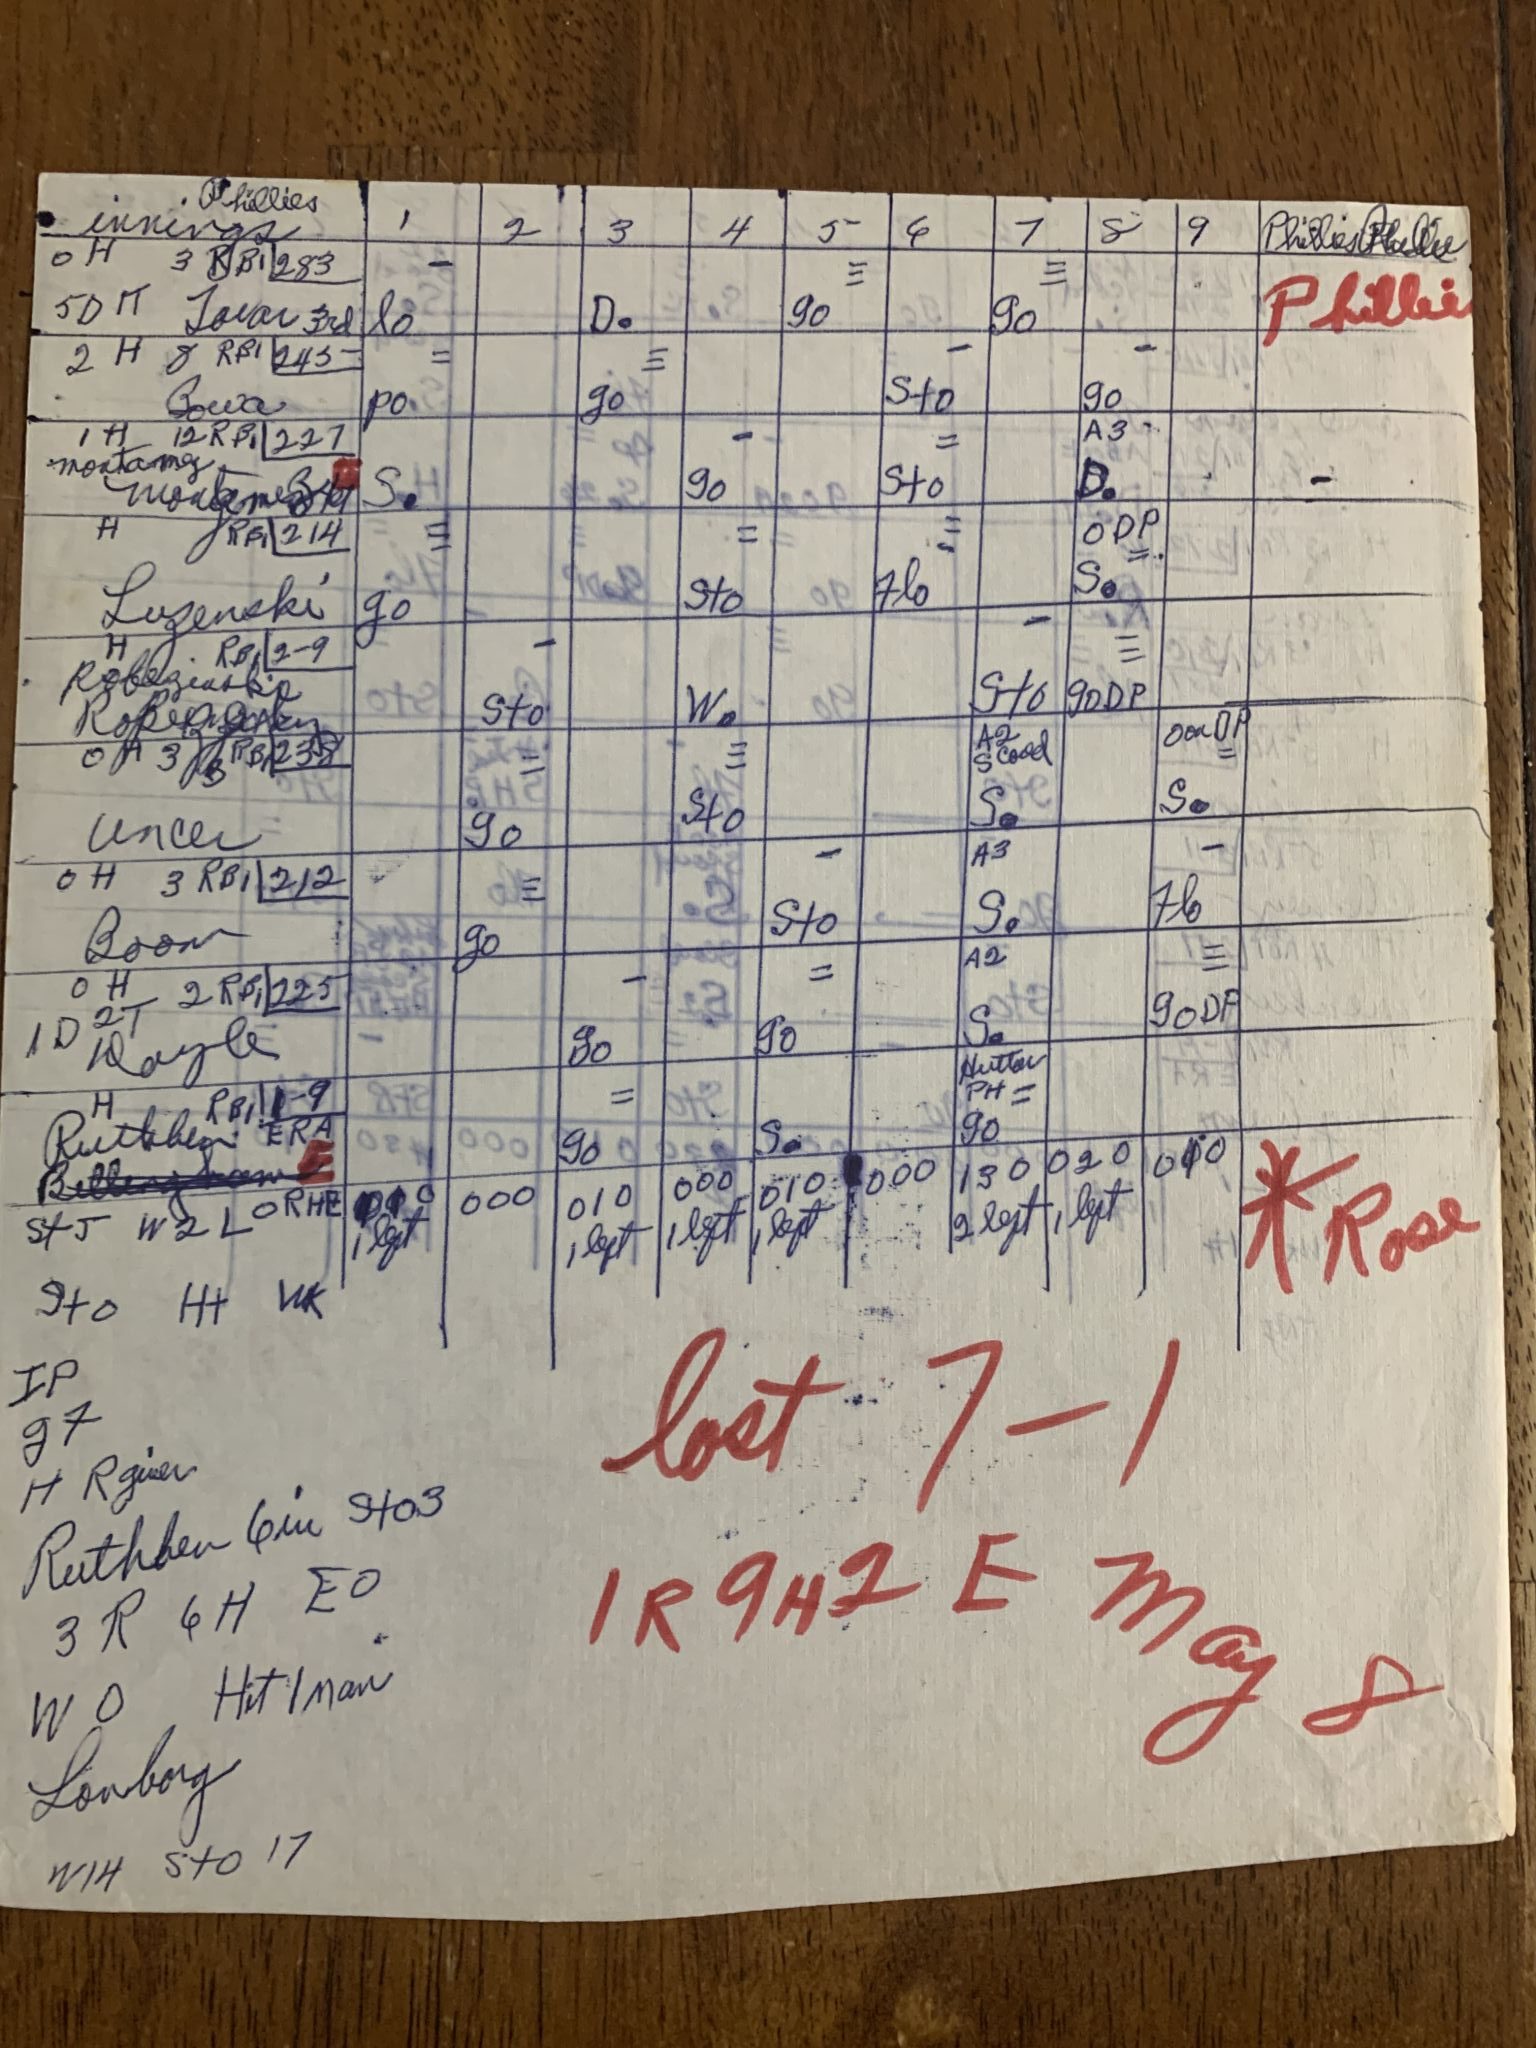 Phillies
innings 1 2 3 4 5 6 7 8 9 Phillies
0 H 3 RBI 283 - ≡ ≡ Phillies
5D T Tovar 3rd lo D. go go
2 H 8 RBI 245 = ≡ - -
Bowa po go Sto go
1 H 12 RBI 227 - = A3 -
montanez
S. go Sto D. -
H RBI 214 ≡ = ≡ 0 DP =
Luzenski go Sto Flo S.
H RBI 2-9 - - ≡
Sto W. Sto goDP
0 H 3 RBI = ≡ A2 Scored 0on DP =
Uncer go Sto S. So
0 H 3 RBI 212 ≡ - A3 -
Boom go Sto S. Flo
0 H 2 RBI 225 - = A2 ≡
1D 2T
Doyle go go S. goDP
H RBI 1-9 = Hutton PH =
Ruthben ERA go S. go
E
St 5 W 2 L 0 RHE 000 010 000 010 000 130 020 010
1 left 1 left 1 left 1 left 2 left 1 left
* Rose
Sto Ht WK
IP
g7
H R given
Ruthben 6in Sto3
3 R 6 H E0
W 0 Hit 1 man
Lonborg
W14 Sto 17
lost 7-1
1 R 9 H 2 E May 8